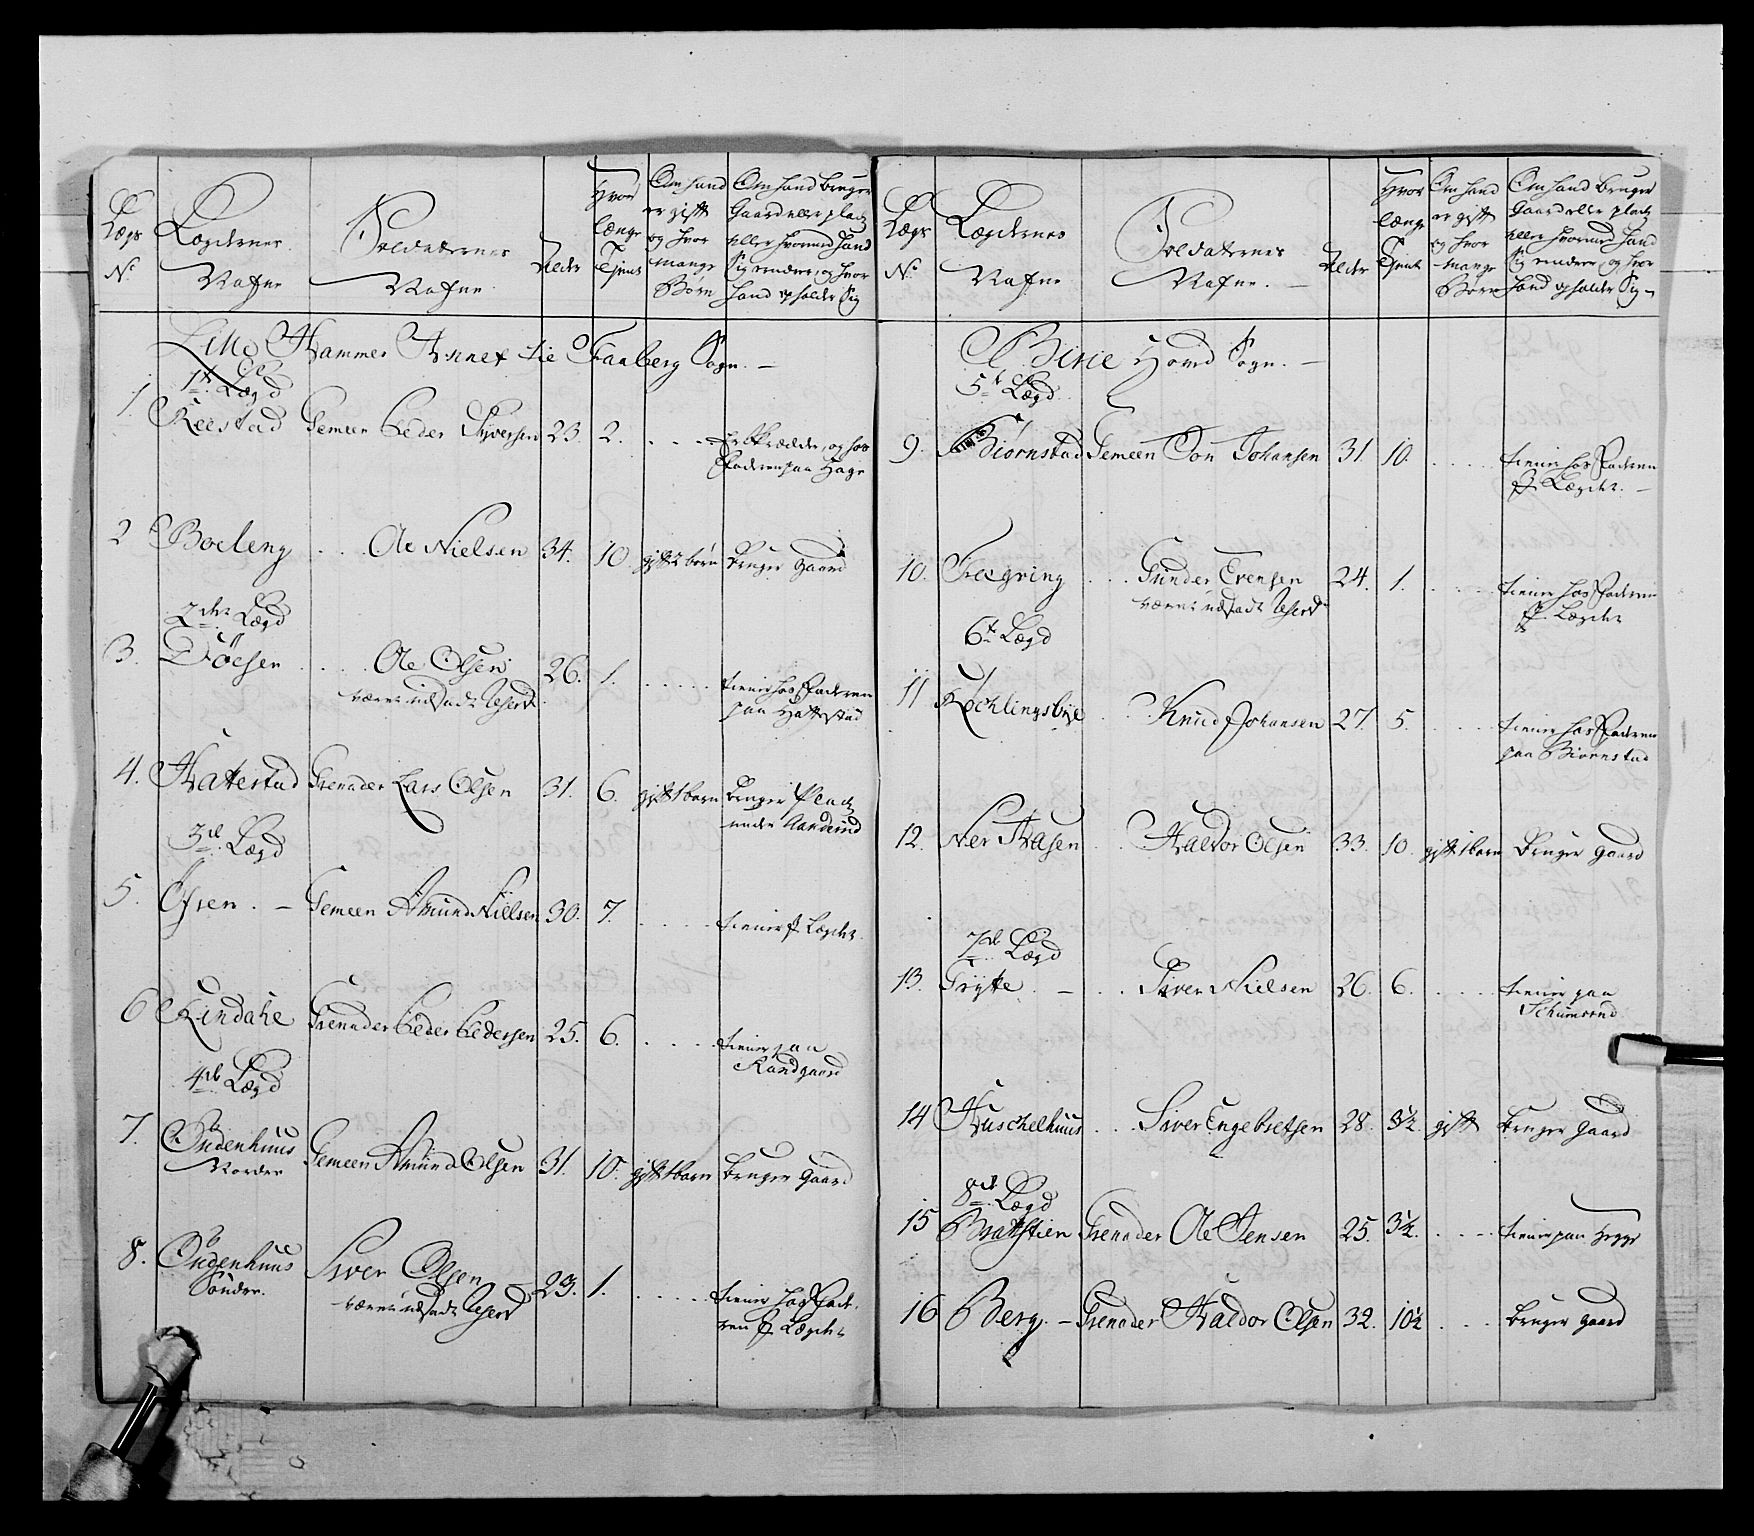 Lægs
No
Lægdernes
Nafne
Soldaternes
Nafne.
Alder
Hvor
længe
Tjent
Om hand
er gift
og hvor
mange
Børn
Om hand bruger
Gaard eller plads
eller hvormed hand
Sig ernærer, og hvor
hand opholder Sig
Lille Hammer Annex til Faaberg Sogn. —
1te Lægd
1. Reistad Gemeen Peder Syversen 23. 2. . . . . og hos
Faderen paa Hage
2 Boeleng . . . Ole Nielsen 34. 10 gift 2 børn Bruger Gaard
2den Lægd
3. Döesen . . . . Ole Olsen 26. 1. . . . . . tiener hos Faderen
paa Hattestad
4. Hattestad Grenader Lars Olsen 31. 6. gift 1 barn Bruger Plads
under
3de Lægd
5. Öfren. — Gemeen Amund Nielsen 30. 7. . . . . tiener p. Lægdet
6 Rindahl Grenader Peder Pedersen 25. 6. . . . . tiener paa
Randgaard
4de Lægd
7. Sudenhuus
Nordre
Gemeen Amund Olsen 31. 10. gift 1 barn Bruger Gaard
8. Sudenhuus
Söndre.
Siver Olsen 23. 1. . . . . . tiener hos Fade-
ren p. Lægdet
Lægs
No
Lægdernes
Nafne
Soldaternes
Nafne. —
Alder
Hvor
længe
Tjent
Om hand
er gift
og hvor
mange
Børn
Om hand bruger
Gaard eller plads
eller hvormed hand
Sig ernærer, og hvor
hand opholder Sig —
Birie Hoved Sogn. —
5te Lægd
9. Biörnstad Gemeen Jon Johansen 31. 10. . . . . tiener hos Faderen
p. Lægdet. —
10. . . . Gunder Evensen 24. 1. . . . . tiener hos Faderen
p. Lægdet
6te Lægd
11 Röchlingsbye . . . Knud Johansen 27. 5. . . . . tiener hos Faderen
paa Biörnstad
12. Ner Aasen . . Haldor Olsen 33. 10. gift 1 barn Bruger Gaard
7de Lægd
13. Gryte. — . . Siver Nielsen 26. 6. . . . . tiener paa
14 Huschelhuus . . . Siver Engebretsen 28. 3½. gift Bruger Gaard
8de Lægd
15 Brattstien Grenader Ole Jensen 25. 3½. . . . . tiener paa Hegge
16 Berg. — Grenader Haldor Olsen 32. 10½ . . . Bruger Gaard